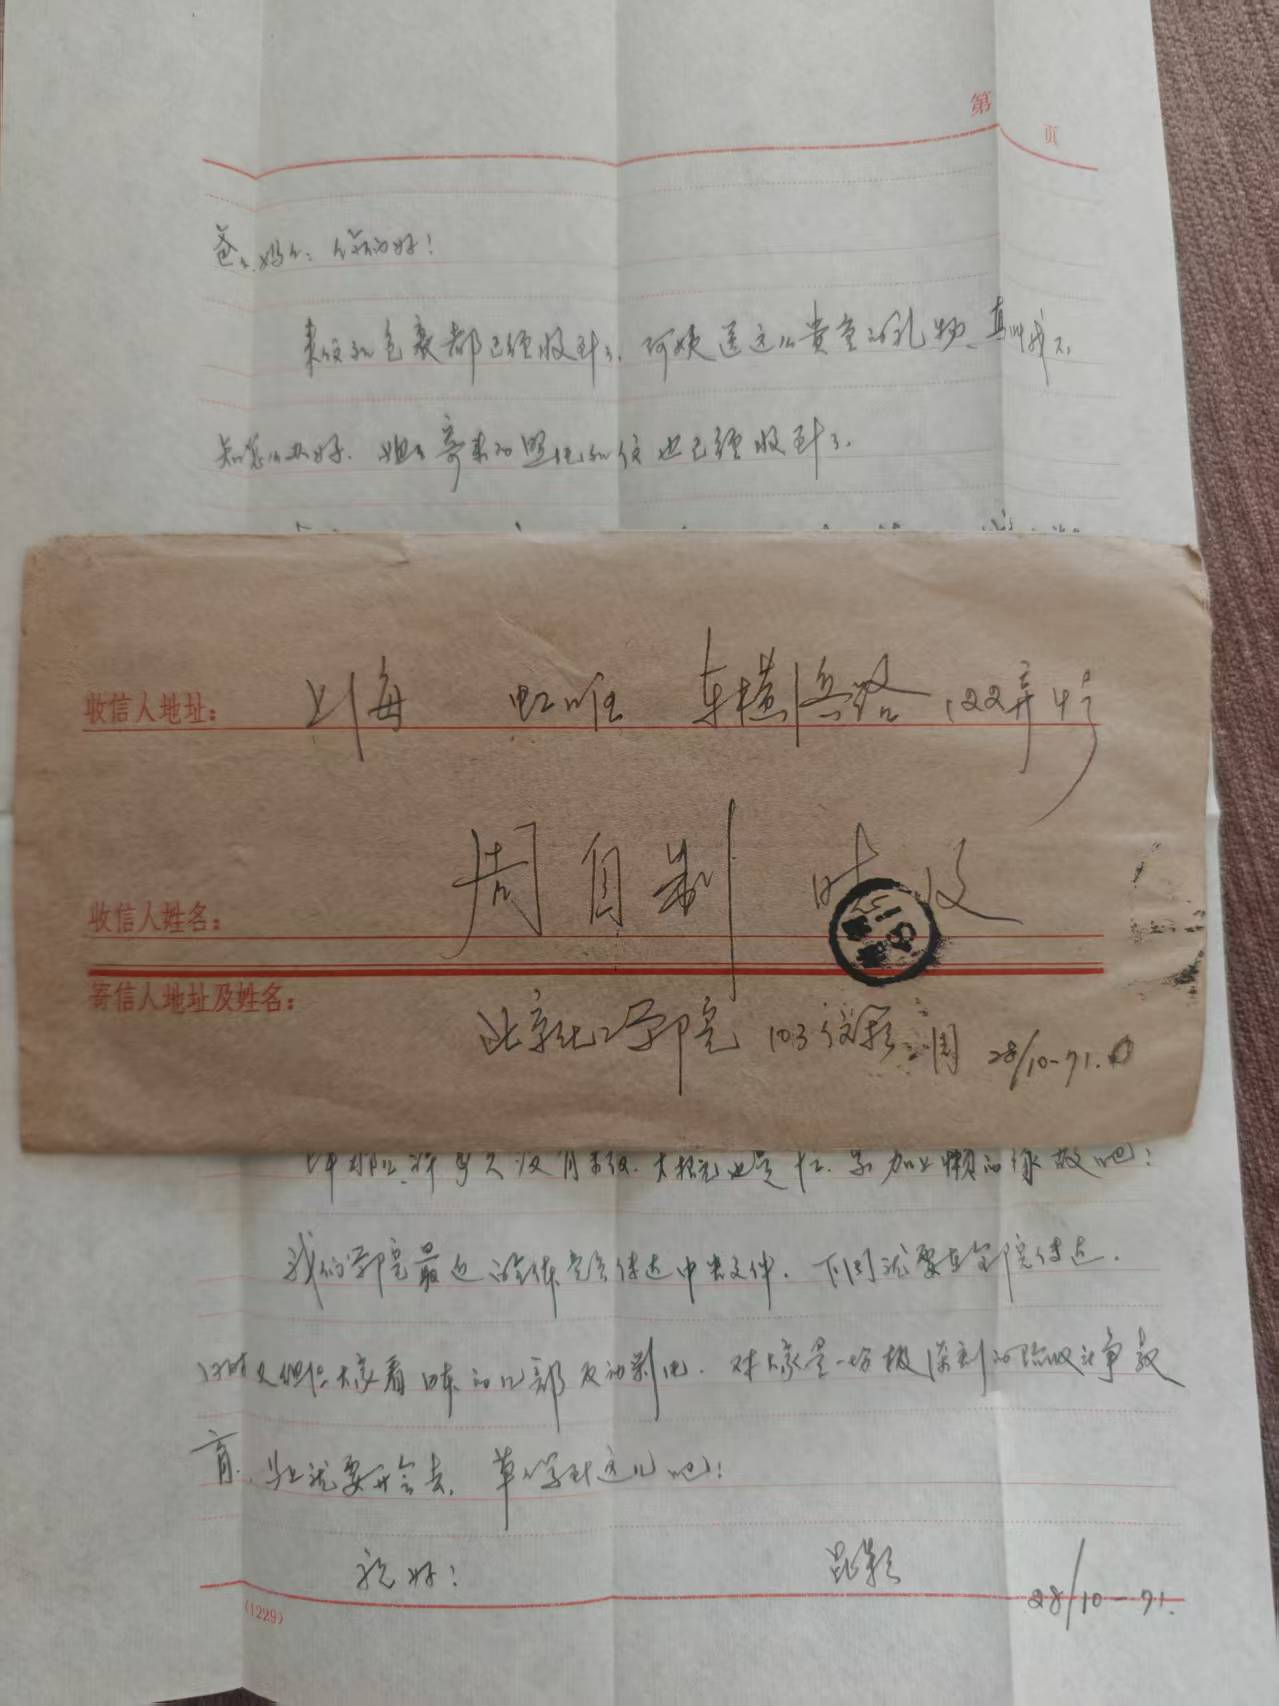 第 页
爸爸妈妈：你们好！
来信和包裹都已经收到了，阿姨送这么贵重的礼物，真叫我不
知怎么办好。姐姐寄来的照片和信也已经收到了。
收信人地址： 上海 虹口 东横浜路 122弄4号
收信人姓名： 周自制
寄信人地址及姓名：
北京化工学院 103信箱 周 28/10-71.
没有 大概也是忙 加上懒的缘故吧！
我们学院最近 全体党员传达中央文件，下周就要在全院传达，
同时又组织大家看日本的几部反动影片，对大家是一场极深刻的阶级斗争教
育，马上就要开会去，草草写到这儿吧！
祝好！
28/10-71.
(1229)